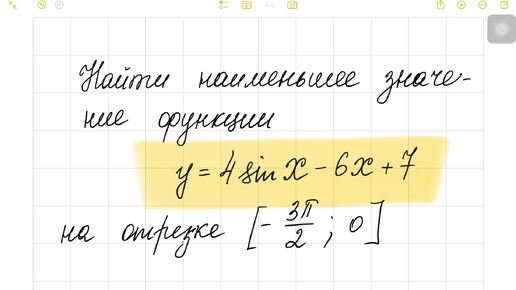 Найти наименьшее значе-
ние функции
y = 4 sin x - 6x + 7
на отрезке [- 3π/2 ; 0]